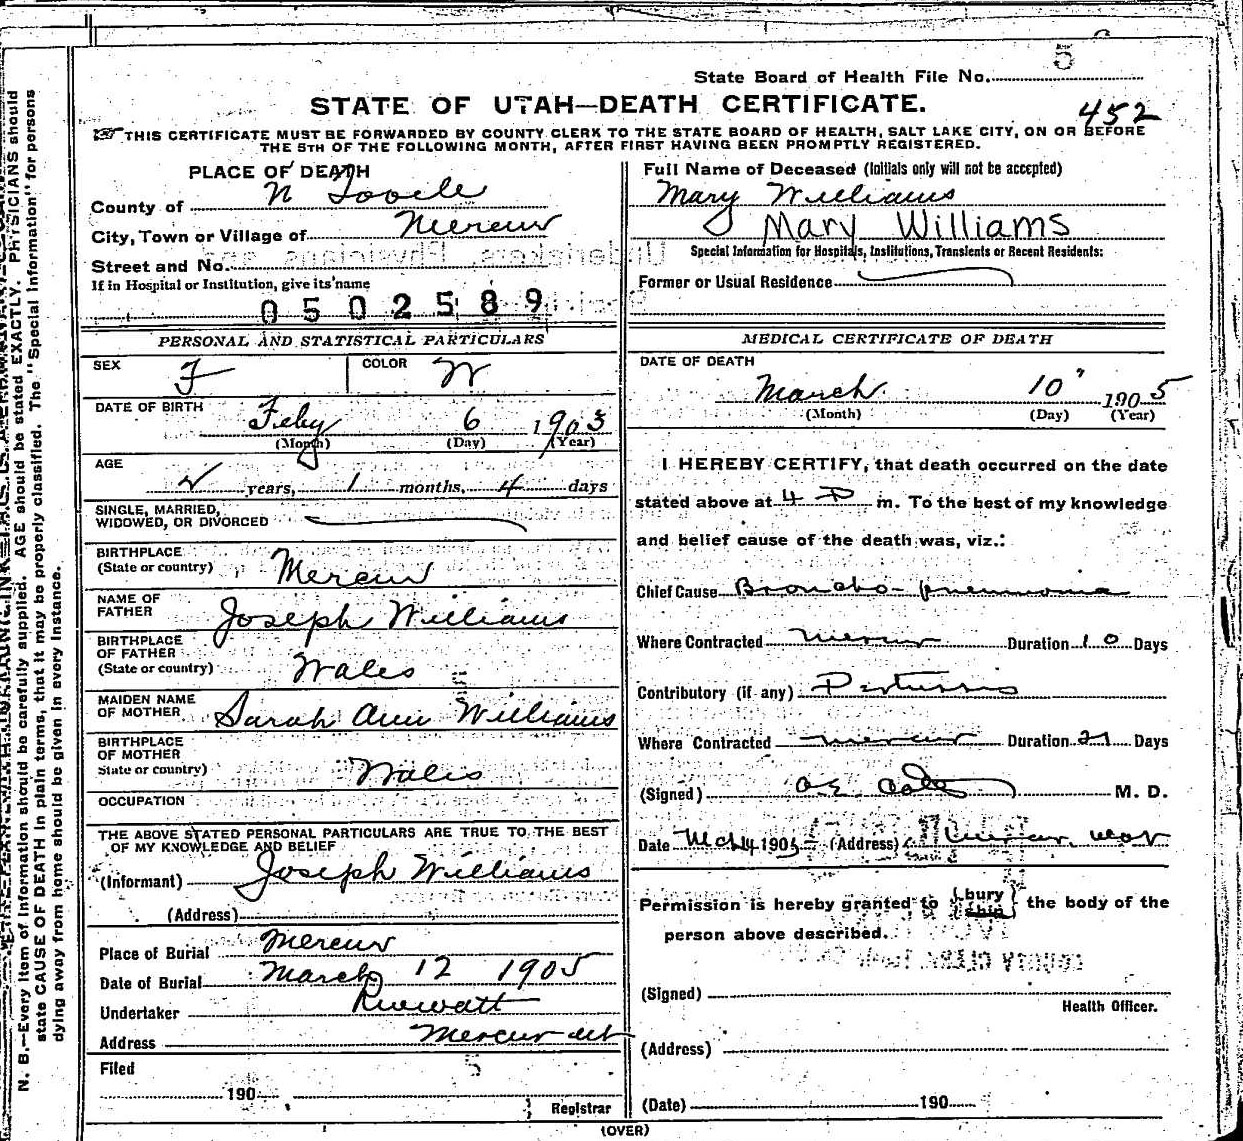 State Board of Health File No. 5
STATE OF UTAH—DEATH CERTIFICATE.
452
THIS CERTIFICATE MUST BE FORWARDED BY COUNTY CLERK TO THE STATE BOARD OF HEALTH, SALT LAKE CITY, ON OR BEFORE
THE 5TH OF THE FOLLOWING MONTH, AFTER FIRST HAVING BEEN PROMPTLY REGISTERED.
PLACE OF DEATH
County of Tooele
City, Town or Village of Mercur
Street and No.
If in Hospital or Institution, give its name
0502589
Full Name of Deceased (Initials only will not be accepted)
Mary Williams
Mary Williams
Special Information for Hospitals, Institutions, Transients or Recent Residents:
Former or Usual Residence
PERSONAL AND STATISTICAL PARTICULARS
SEX F COLOR W
DATE OF BIRTH
Feby 6 1903
(Month) (Day) (Year)
AGE
2 years, 1 months, 4 days
SINGLE, MARRIED,
WIDOWED, OR DIVORCED
BIRTHPLACE
(State or country) Mercur
NAME OF
FATHER Joseph Williams
BIRTHPLACE
OF FATHER
(State or country) Wales
MAIDEN NAME
OF MOTHER Sarah Ann Williams
BIRTHPLACE
OF MOTHER
State or country) Wales
OCCUPATION
THE ABOVE STATED PERSONAL PARTICULARS ARE TRUE TO THE BEST
OF MY KNOWLEDGE AND BELIEF
(Informant) Joseph Williams
(Address)
Place of Burial Mercur
Date of Burial March 12 1905
Undertaker
Address Mercur Ut
Filed 5
190
Registrar
MEDICAL CERTIFICATE OF DEATH
DATE OF DEATH
March 10" 1905
(Month) (Day) (Year)
I HEREBY CERTIFY, that death occurred on the date
stated above at 4 P m. To the best of my knowledge
and belief cause of the death was, viz.:
Chief Cause Broncho-pneumonia
Where Contracted Mercur Duration 10 Days
Contributory (if any) Pertussis
Where Contracted Mercur Duration 21 Days
(Signed) M. D.
Date Mch 14 1905 (Address)
Permission is hereby granted to {bury ship} the body of the
person above described.
(Signed)
Health Officer.
(Address)
(Date) 190
(OVER)
N. B.—Every item of information should be carefully supplied. AGE should be stated EXACTLY. PHYSICIANS should
state CAUSE OF DEATH in plain terms, that it may be properly classified. The "Special Information" for persons
dying away from home should be given in every instance.